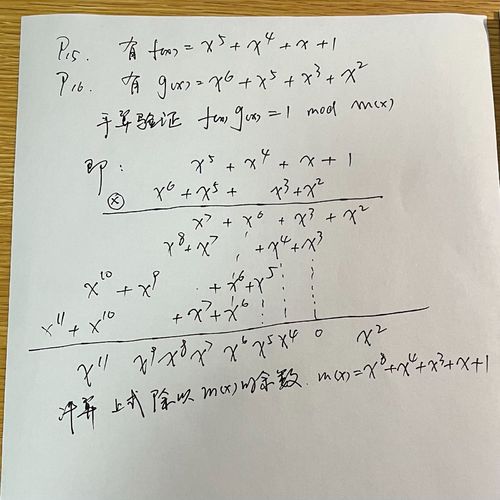 P15. 有 f(x) = x⁵ + x⁴ + x + 1
P16. 有 g(x) = x⁶ + x⁵ + x³ + x²
手算验证 f(x) g(x) = 1 mod m(x)
即: x⁵ + x⁴ + x + 1
⊗ x⁶ + x⁵ + x³ + x²
x⁷ + x⁶ + x³ + x²
x⁸ + x⁷ + x⁴ + x³
x¹⁰ + x⁹ + x⁶ + x⁵
x¹¹ + x¹⁰ + x⁷ + x⁶
x¹¹ x⁹ x⁸ x⁷ x⁶ x⁵ x⁴ 0 x²
计算 上式 除以 m(x) 的余数. m(x) = x⁸ + x⁴ + x³ + x + 1